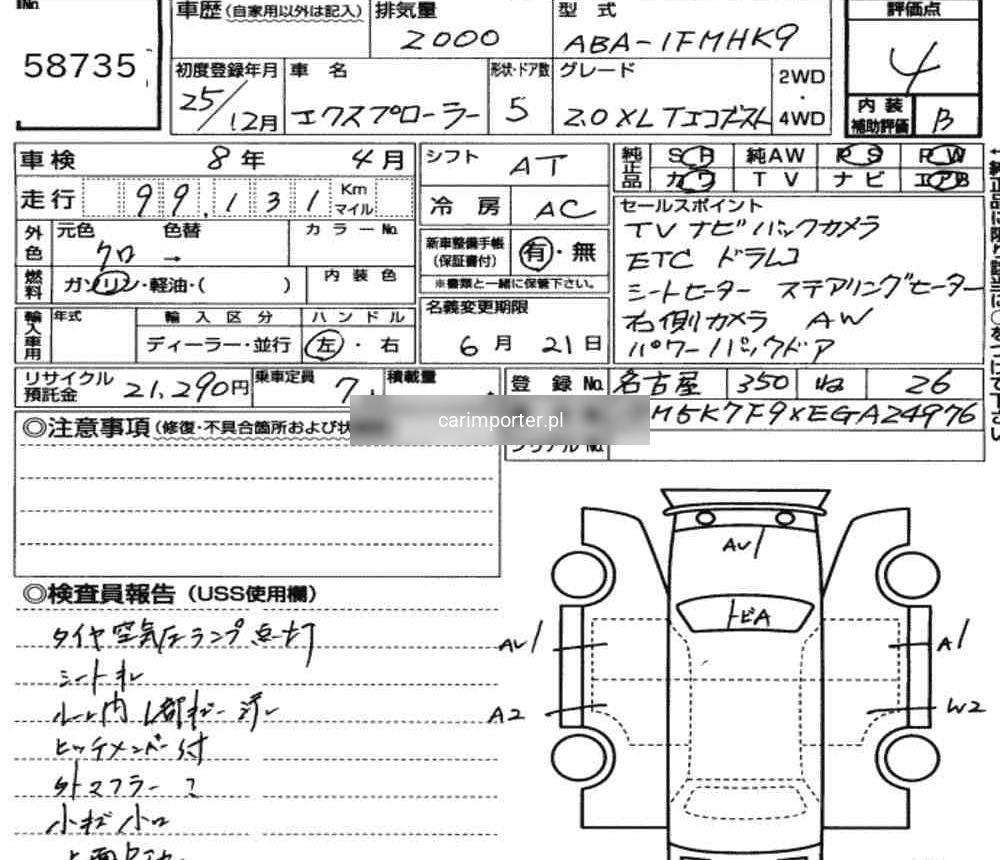 No.
58735
車歴(自家用以外は記入) 排気量 2000
型式 ABA-1FMHK9
評価点 4
初度登録年月 25/12月
車名 エクスプローラー
形状・ドア数 5
グレード 2.0 XLTエコブースト
2WD・4WD
内装補助評価 B
車検 8年 4月
走行 99,131 Km マイル
シフト AT
冷房 AC
純正品 SR 純AW PS PW
カワ TV ナビ エアB
外色 元色 クロ 色替 → カラーNo.
燃料 ガソリン・軽油・( ) 内装色
新車整備手帳(保証書付) 有・無
※書類と一緒に保管下さい。
セールスポイント
TV ナビ バックカメラ
ETC ドラレコ
シートヒーター ステアリングヒーター
右側カメラ AW
パワーバックドア
輸入車用 年式 輸入区分 ディーラー・並行 ハンドル 左・右
名義変更期限 6月 21日
リサイクル預託金 21,290円
乗車定員 7
積載量
登録No. 名古屋 350 ね 26
M5K7F9XEGA24976
シリアルNo.
carimporter.pl
◎注意事項(修復・不具合箇所および状
◎検査員報告(USS使用欄)
タイヤ空気圧ランプ点灯
シートヨレ
ヒッチメンバー付
外マフラー
小キズ小凹
AU1
トビA
AU1
A1
A2
W2